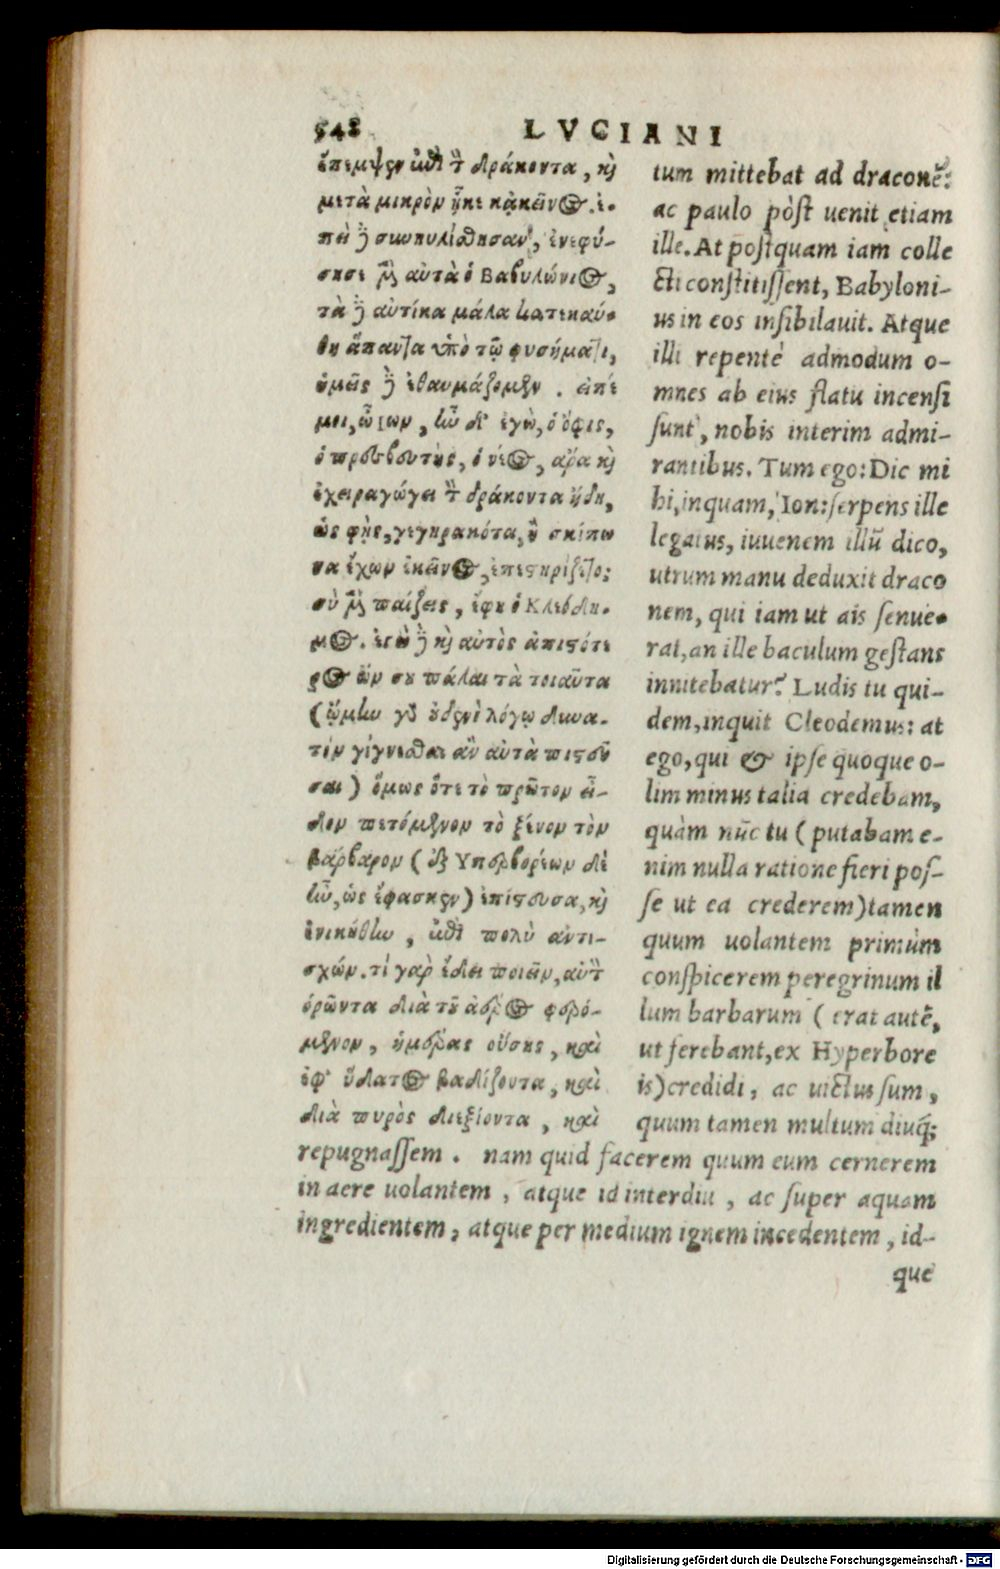 548 LVCIANI
ἔπεμψεν ἐπὶ τ̃ δράκοντα, κὶ
μετὰ μικρὸν ἧκε κᾀκεῖνος. ἐ-
πεὶ δ̀ συνηλίσθησαν, ἐνεφύ-
σησε μ̀ αὐτὰ ὁ Βαβυλώνιος,
τὰ δ̀ αὐτίκα μάλα κατεκαύ-
θη ἅπαντα ὑπὸ τῷ φυσήματι,
ἡμεῖς δ̀ ἐθαυμάζομεν . εἰπέ
μοι, ὦ ἴων, ἦν δ' ἐγὼ, ὁ ὄφις,
ὁ πρεσβευτὴς, ὁ νέος, ἆρα κὶ
ἐχειραγώγει τ̃ δράκοντα ἤδη,
ὡς φῂς, γεγηρακότα, ἢ σκίπω
να ἔχων ἐκεῖνος, ἐπεστηρίζετο;
σὺ μ̀ παίζεις, ἔφη ὁ Κλεόδη-
μος. ἐγὼ δ̀ κὶ αὐτὸς ἀπιστότε
ρος ὤν σου πάλαι τὰ τοιαῦτα
(ᾤμην γὰρ οὐδενὶ λόγῳ δυνα-
τὸν γίγνεσθαι ἂν αὐτὰ πιστεῦ
σαι) ὅμως ὅτε τὸ πρῶτον εἶ-
δον πετόμενον τὸ ξένον τὸν
βάρβαρον (ἐξ Υπερβορέων δὲ
ἦν, ὡς ἔφασκεν) ἐπίστευσα, κὶ
ἐνικήθην , ἐπὶ πολὺ ἀντι-
σχών. τί γὰρ ἔδει ποιεῖν, αὐτ̃
ὁρῶντα διὰ τοῦ ἀέρος φερό-
μενον, ἡμέρας οὔσης, καὶ
ἐφ' ὕδατος βαδίζοντα, καὶ
διὰ πυρὸς διεξιόντα , καὶ
tum mittebat ad draconẽ:
ac paulo pòst uenit etiam
ille. At postquam iam colle
cti constitissent, Babyloni-
us in eos insibilauit. Atque
illi repentè admodum o-
mnes ab eius flatu incensi
sunt, nobis interim admi-
rantibus. Tum ego: Dic mi
hi, inquam, Ion: serpens ille
legatus, iuuenem illũ dico,
utrum manu deduxit draco
nem, qui iam ut ais senue-
rat, an ille baculum gestans
innitebatur? Ludis tu qui-
dem, inquit Cleodemus: at
ego, qui & ipse quoque o-
lim minus talia credebam,
quàm nũc tu ( putabam e-
nim nulla ratione fieri pos-
se ut ea crederem) tamen
quum uolantem primùm
conspicerem peregrinum il
lum barbarum ( erat autẽ,
ut ferebant, ex Hyperbore
is) credidi, ac uictus sum,
quum tamen multum diuq́;
repugnassem . nam quid facerem quum eum cernerem
in aere uolantem , atque id interdiu , ac super aquam
ingredientem, atque per medium ignem incedentem, id-
que
Digitalisierung gefördert durch die Deutsche Forschungsgemeinschaft - DFG